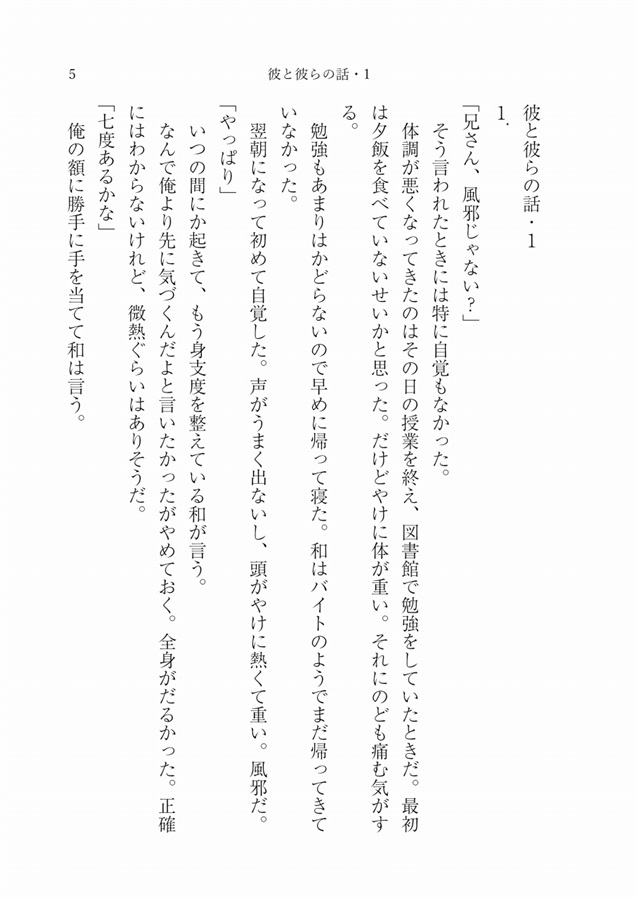 5
彼と彼らの話・1
彼と彼らの話・1
1.
「兄さん、風邪じゃない?」
そう言われたときには特に自覚もなかった。
体調が悪くなってきたのはその日の授業を終え、図書館で勉強をしていたときだ。最初
は夕飯を食べていないせいかと思った。だけどやけに体が重い。それにのども痛む気がす
る。
勉強もあまりはかどらないので早めに帰って寝た。和はバイトのようでまだ帰ってきて
いなかった。
翌朝になって初めて自覚した。声がうまく出ないし、頭がやけに熱くて重い。風邪だ。
「やっぱり」
いつの間にか起きて、もう身支度を整えている和が言う。
なんで俺より先に気づくんだよと言いたかったがやめておく。全身がだるかった。正確
にはわからないけれど、微熱ぐらいはありそうだ。
「七度あるかな」
俺の額に勝手に手を当てて和は言う。